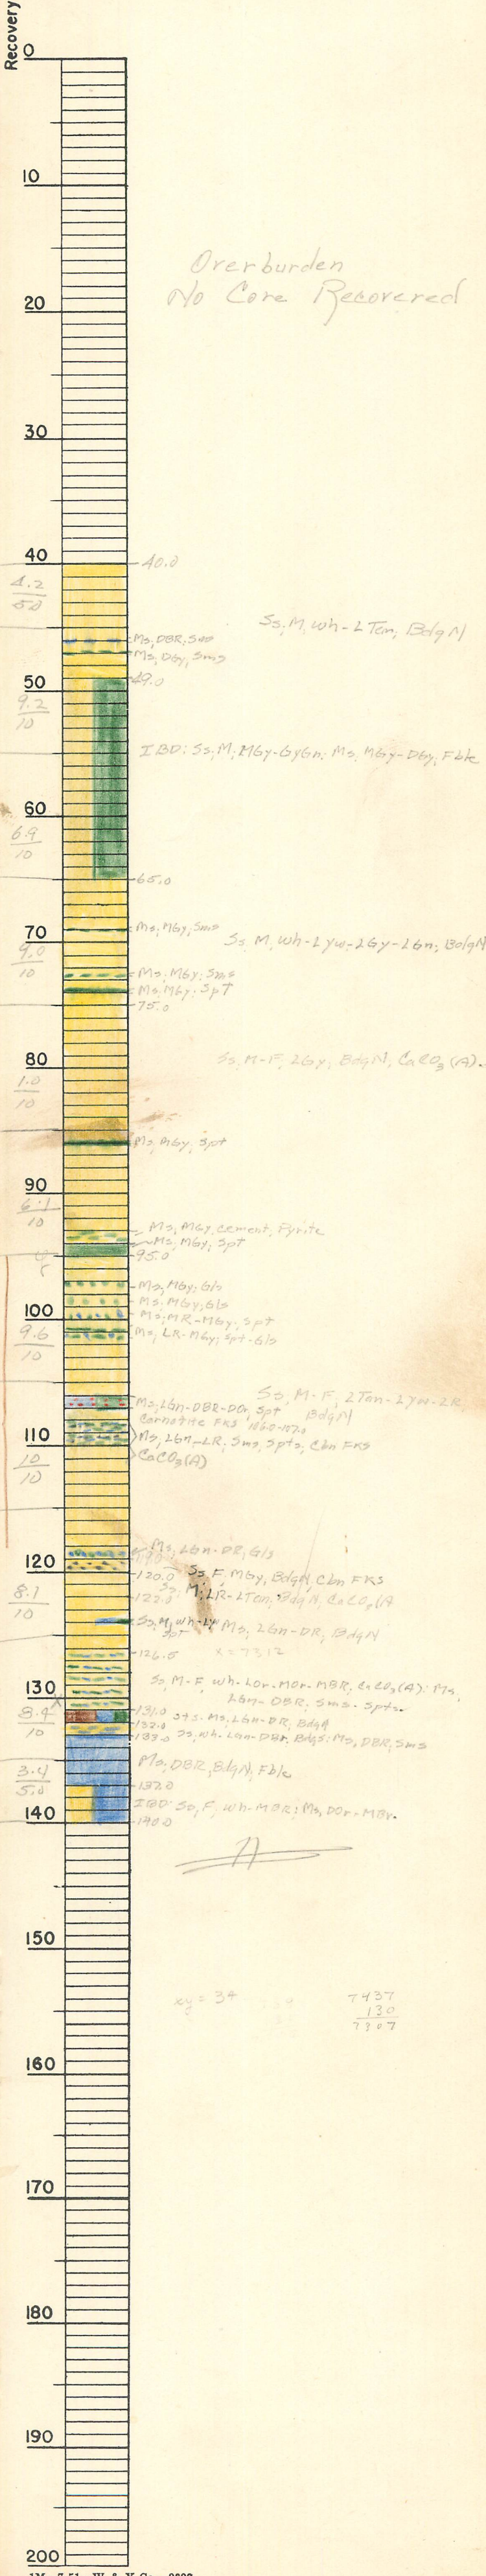 Recovery
0
10
Overburden
No Core Recovered
20
30
40
40.0
4.2
50
Ss, M, Wh-LTan, BdgN
Ms, DBR, Sms
Ms, DGy, Sms
49.0
50
9.2
10
IBD: Ss, M, MGy-GyGn: Ms, MGy-DGy, Fble
60
6.9
10
65.0
70
Ms, MGy, Sms
Ss, M, Wh-Lyw-LGy-LGn, BdgN
9.0
10
Ms, MGy, Sms
Ms, MGy, Spt
75.0
80
Ss, M-F, LGy, BdgN, CaCO3 (A).
1.0
10
Ms, MGy, Spt
90
6.1
10
Ms, MGy, Cement, Pyrite
Ms, MGy, Spt
95.0
Ms, MGy, Gls
Ms, MGy, Gls
100
Ms, MR-MGy, Spt
Ms, LR-MGy, Spt-Gls
9.6
10
Ss, M-F, LTan-Lyw-LR,
BdgN
Ms, LGn-DBR-DOr, Spt
Carnotite FKS 106.0-107.0
110
Ms, LGn-LR, Sms, Spts, Cbn FKS
CaCO3 (A)
10
10
Ms, LGn-DR, Gls
119.0
120
120.0 Ss, F, MGy, BdgN, Cbn FKS
122.0 Ss, M, LR-LTan, BdgN, CaCO3 (A
8.1
10
Ss, M, Wh-Ly Ms, LGn-DR, BdgN
Spt
126.5
x = 7312
Ss, M-F, Wh-LOr-MOr-MBR, CaCO3 (A): Ms,
LGn-DBR, Sms-Spts.
130
X
131.0 Sts-Ms, LGn-DR, BdgN
132.0
133.0 Ss, Wh-LGn-DBr, BdgS: Ms, DBR, Sms
8.4
10
Ms, DBR, BdgN, Fble
3.4
5.0
137.0
IBD: Ss, F, Wh-MBR: Ms, DOr-MBr.
140
140.0
150
xy = 34
7437
130
7307
160
170
180
190
200